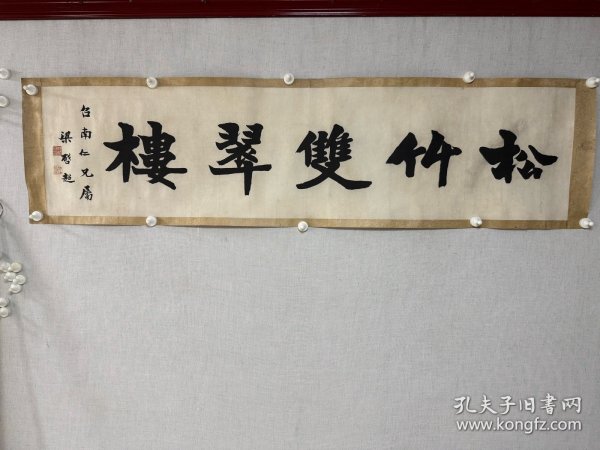 松竹雙翠樓
台南仁兄屬
梁啓超
孔夫子旧書网
www.kongfz.com